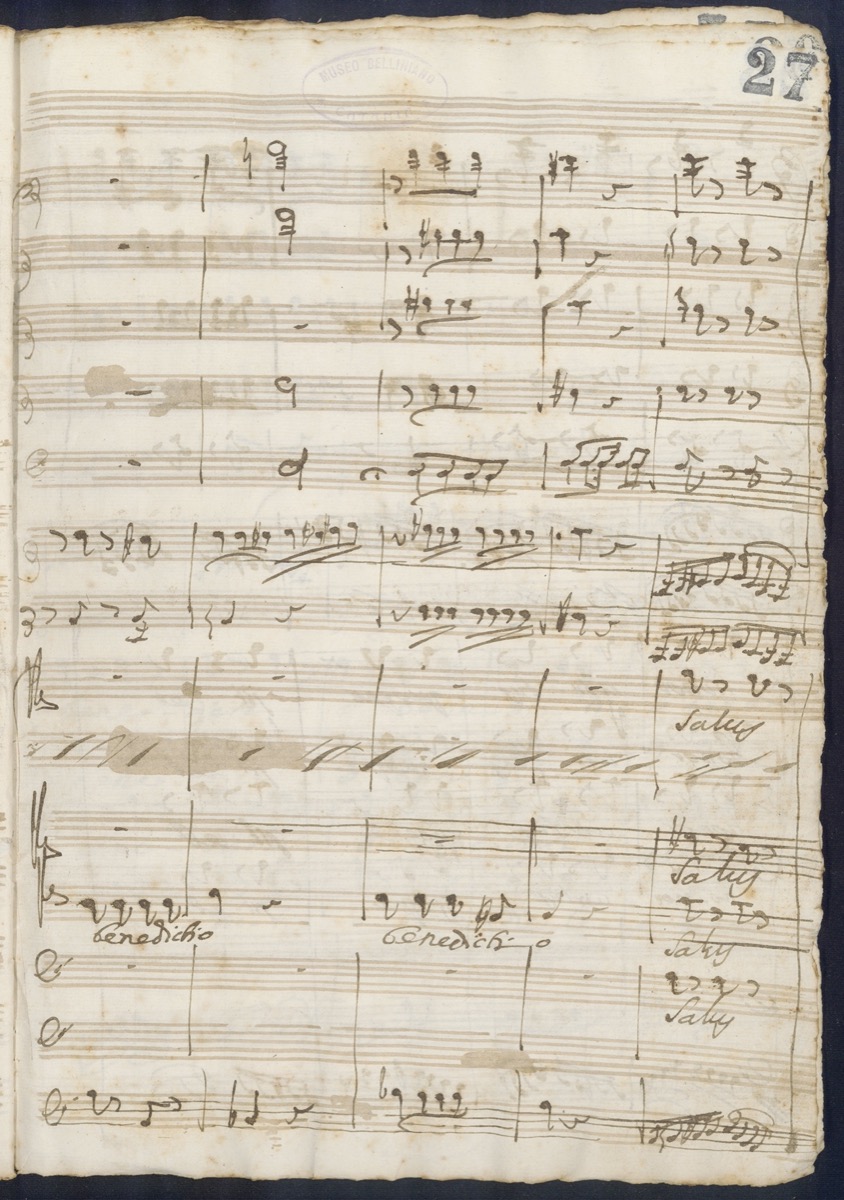 27
MUSEO BELLINIANO
Salus
Salus
benedictio benedicti o
Salus
Salus